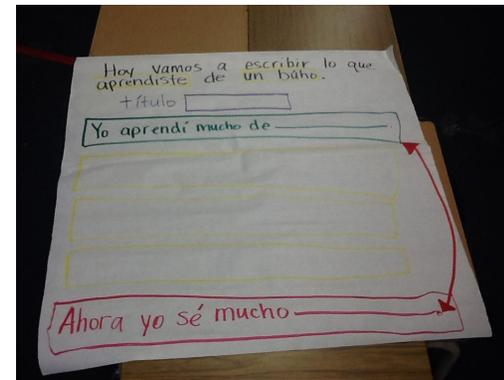 Hoy vamos a escribir lo que
aprendiste de un búho.
título
Yo aprendí mucho de
Ahora yo sé mucho